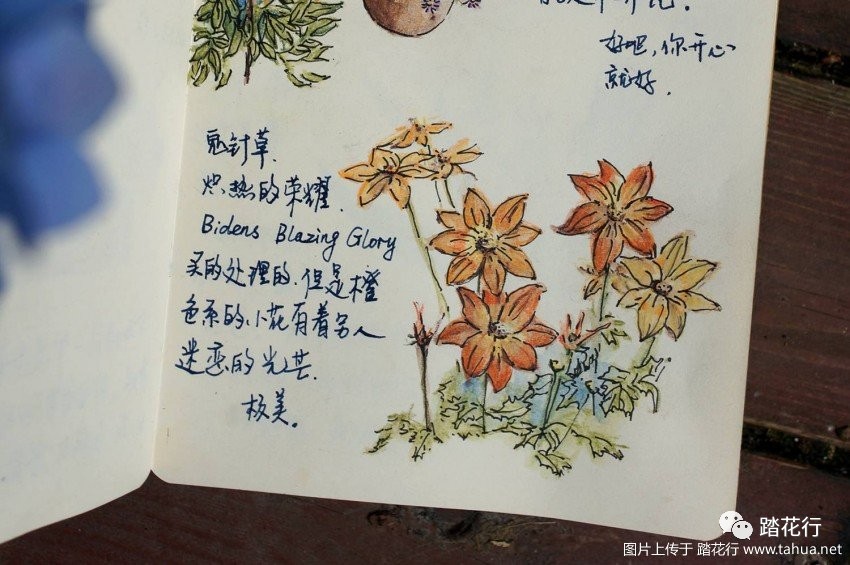 好吧,你开心
就好.
鬼针草.
炽热的荣耀.
Bidens Blazing Glory
买的处理的.但是橙
色系的小花有着另人
迷恋的光芒.
极美。
踏花行
图片上传于 踏花行 www.tahua.net